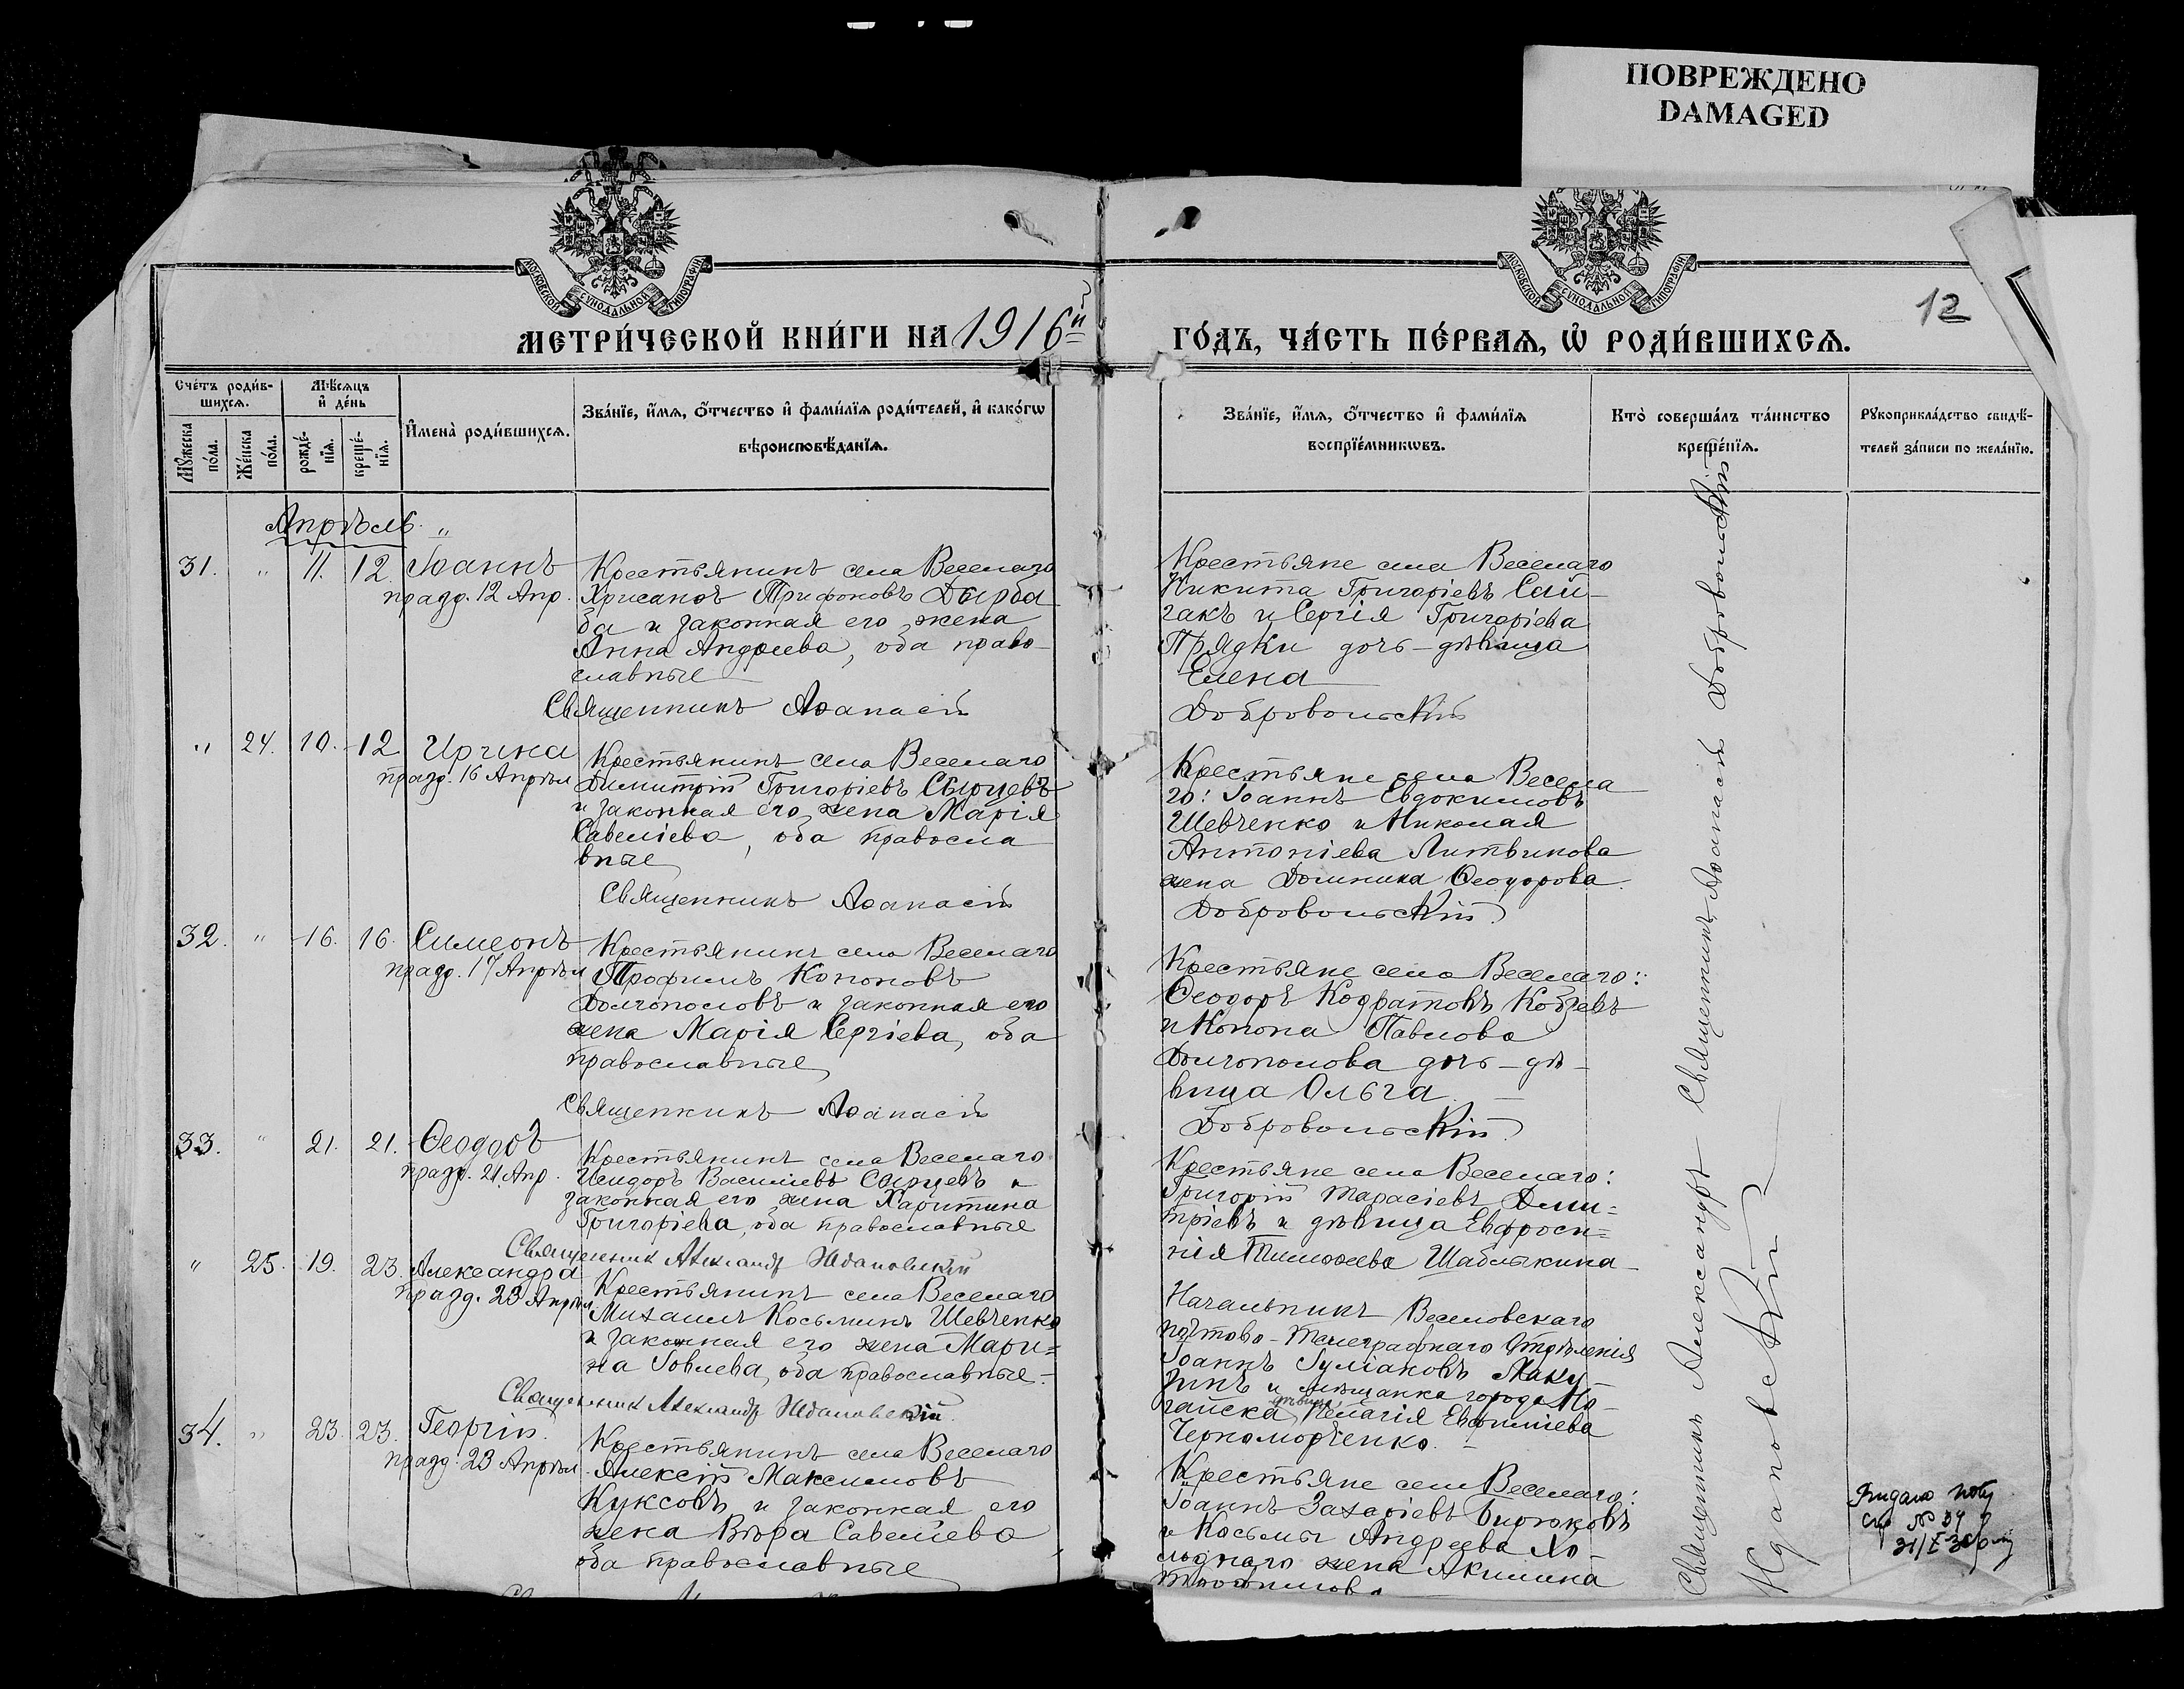 ПОВРЕЖДЕНО
DAMAGED
МОСКОВСКОЙ СУНОДАЛЬНОЙ ТИПОГРАФІИ
МОСКОВСКОЙ СУНОДАЛЬНОЙ ТИПОГРАФІИ
12
МЕТРИ́ЧЕСКОЙ КНИ́ГИ НА 1916й
ГО́ДЪ, ЧА́СТЬ ПЕ́РВАѦ, Ѡ҆ РОДИ́ВШИХСѦ.
Сче́тъ роди́в-
шихсѧ.
Мꙋ́жеска по́ла.
Же́нска по́ла.
Мѣ́сѧцъ
и҆ де́нь
рожде́-
нїѧ.
креще́-
нїѧ.
И҆мена̀ роди́вшихсѧ.
Зва́нїе, и҆́мѧ, ѻ҆́тчество и҆ фами́лїѧ роди́телей, и҆ како́гѡ
вѣроисповѣ́данїѧ.
Зва́нїе, и҆́мѧ, ѻ҆́тчество и҆ фами́лїѧ
воспрїе́мникѡвъ.
Кто̀ соверша́лъ та́инство
креще́нїѧ.
Рꙋкоприкла́дство свидѣ́-
телей за́писи по жела́нїю.
Апрѣль. "
31. " 11. 12. Іоаннъ
празд. 12 Апр.
Крестьянинъ села Веселаго
Хрисанѳъ Трифоновъ Дырба-
ба и законная его жена
Анна Андреева, оба право-
славные
Священникъ Аѳанасій
Крестьяне села Веселаго
Никита Григоріевъ Сай-
гакъ и Сергія Григоріева
Прядки дочь-дѣвица
Елена
Добровольскій
" 24. 10. 12 Ирина
празд. 16 Апрѣл
Крестьянинъ села Веселаго
Димитрій Григоріевъ Сырцевъ
и законная его жена Марія
Савеліева, оба правосла
вные
Священникъ Аѳанасій
Крестьяне села Весела
го: Іоаннъ Евдокимовъ
Шевченко и Николая
Антоніева Литвинова
жена Домника Ѳеодорова.
Добровольскій
32. " 16. 16. Симеонъ
празд. 17 Апрѣл
Крестьянинъ села Веселаго
Трофимъ Кононовъ
Долгополовъ и законная его
жена Марія Сергіева, оба
православные
Священникъ Аѳанасій
Крестьяне села Веселаго:
Ѳеодоръ Кодратовъ Кобзевъ
и Конона Павлова
Долгополова дочь-дѣ-
вица Ольга.
Добровольскій
33. " 21. 21. Ѳеодоръ
празд. 21. Апр.
Крестьянинъ села Веселаго
Исидоръ Васильевъ Сырцевъ и
законная его жена Харитина
Григоріева, оба православные
Священник Александр Ждановский
Крестьяне села Веселаго:
Григорій Тарасіевъ Дми-
тріевъ и дѣвица Евфроси-
нія Тимоѳеева Шаблыкина
" 25. 19. 23. Александра
празд. 23 Апрѣл.
Крестьянинъ села Веселаго
Михаилъ Косьминъ Шевченко
и законная его жена Мари-
на Іовлева, оба православные.
Священник Александр Ждановский.
Начальникъ Веселовскаго
почтово-телеграфнаго Отдѣленія
Іоаннъ Іуліановъ
и мѣщанка города Но-
гайска дѣвица Пелагія Евфиміева
Черноморченко.
34. " 23. 23. Георгій.
празд. 23 Апрѣл
Крестьянинъ села Веселаго
Алексій Максимовъ
Куксовъ и законная его
жена Вѣра Савельева
оба православные
Крестьяне села Веселаго:
Іоаннъ Захаріевъ Бирюковъ
и Косьмы Андреева Хо-
лоднаго жена Акилина
Трофимова
Священникъ Александръ
Ждановскій
Священникъ Аѳанасій Добровольскій